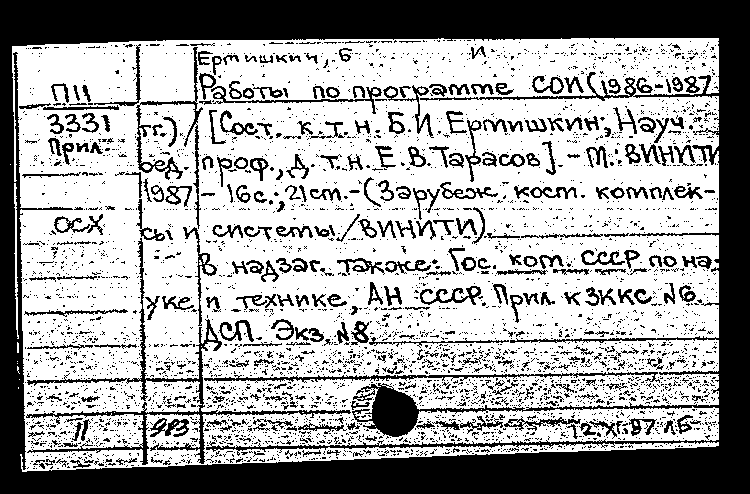 Ермишкин, Б И
П11 Работы по программе СОИ (1986-1987
3331 гг.) / [Сост. к.т.н. Б.И. Ермишкин; Науч.
Прил. ред. проф., д.т.н. Е.В. Тарасов]. - М.: ВИНИТИ
1987 - 16 с.; 21 см. - (Зарубеж. косм. комплек-
ОСХ сы и системы / ВИНИТИ).
В надзаг. также: Гос. ком. СССР по на-
уке и технике, АН СССР. Прил. к ЗККС №6
ДСП. Экз. №8.
11 983 12.XI.87 ЛБ